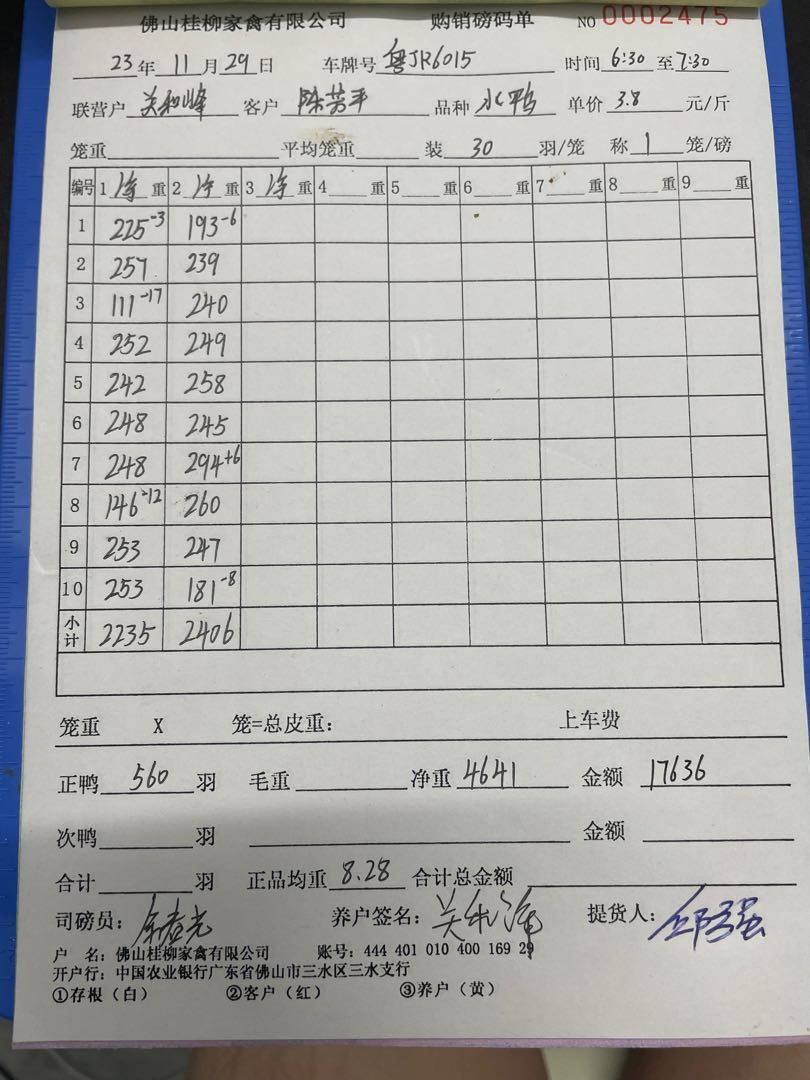 佛山桂柳家禽有限公司 购销磅码单 NO 0002475
23年11月29日 车牌号 粤JR6015 时间 6:30 至 7:30
联营户 关和峰 客户 陈芳平 品种 水鸭 单价 3.8 元/斤
笼重 平均笼重 装 30 羽/笼 称 1 笼/磅
编号 1 净 重 2 净 重 3 净 重 4 重 5 重 6 重 7 重 8 重 9 重
1 225-3 193-6
2 257 239
3 111-17 240
4 252 249
5 242 258
6 248 245
7 248 294+6
8 146-12 260
9 253 247
10 253 181-8
小计 2235 2406
笼重 X 笼=总皮重: 上车费
正鸭 560 羽 毛重 净重 4641 金额 17636
次鸭 羽 金额
合计 羽 正品均重 8.28 合计总金额
司磅员: 养户签名: 关和 提货人: 邱
户 名: 佛山桂柳家禽有限公司 账号: 444 401 010 400 169 29
开户行: 中国农业银行广东省佛山市三水区三水支行
①存根(白) ②客户(红) ③养户(黄)